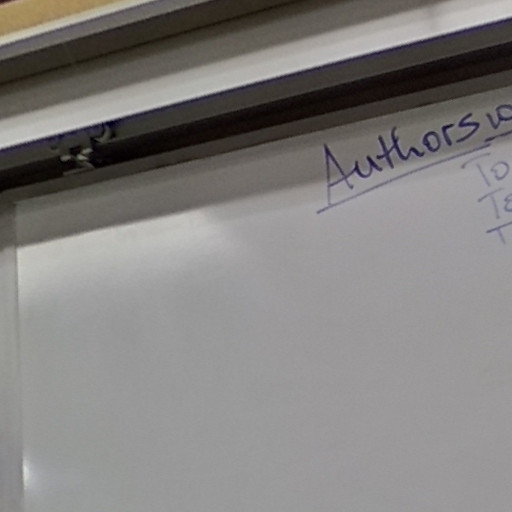 Authors
To
Te
T